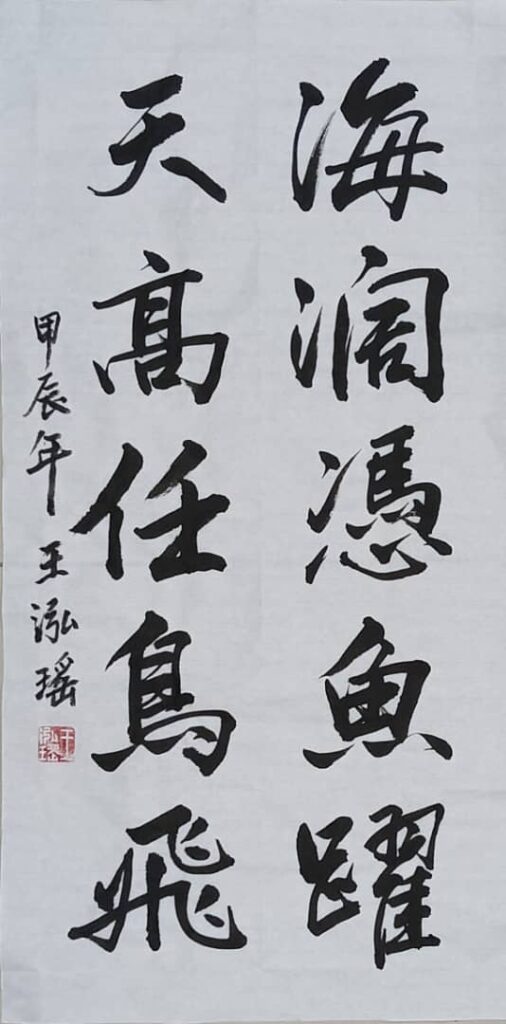 海濶憑魚躍
天髙任鳥飛
甲辰年 王泓瑶